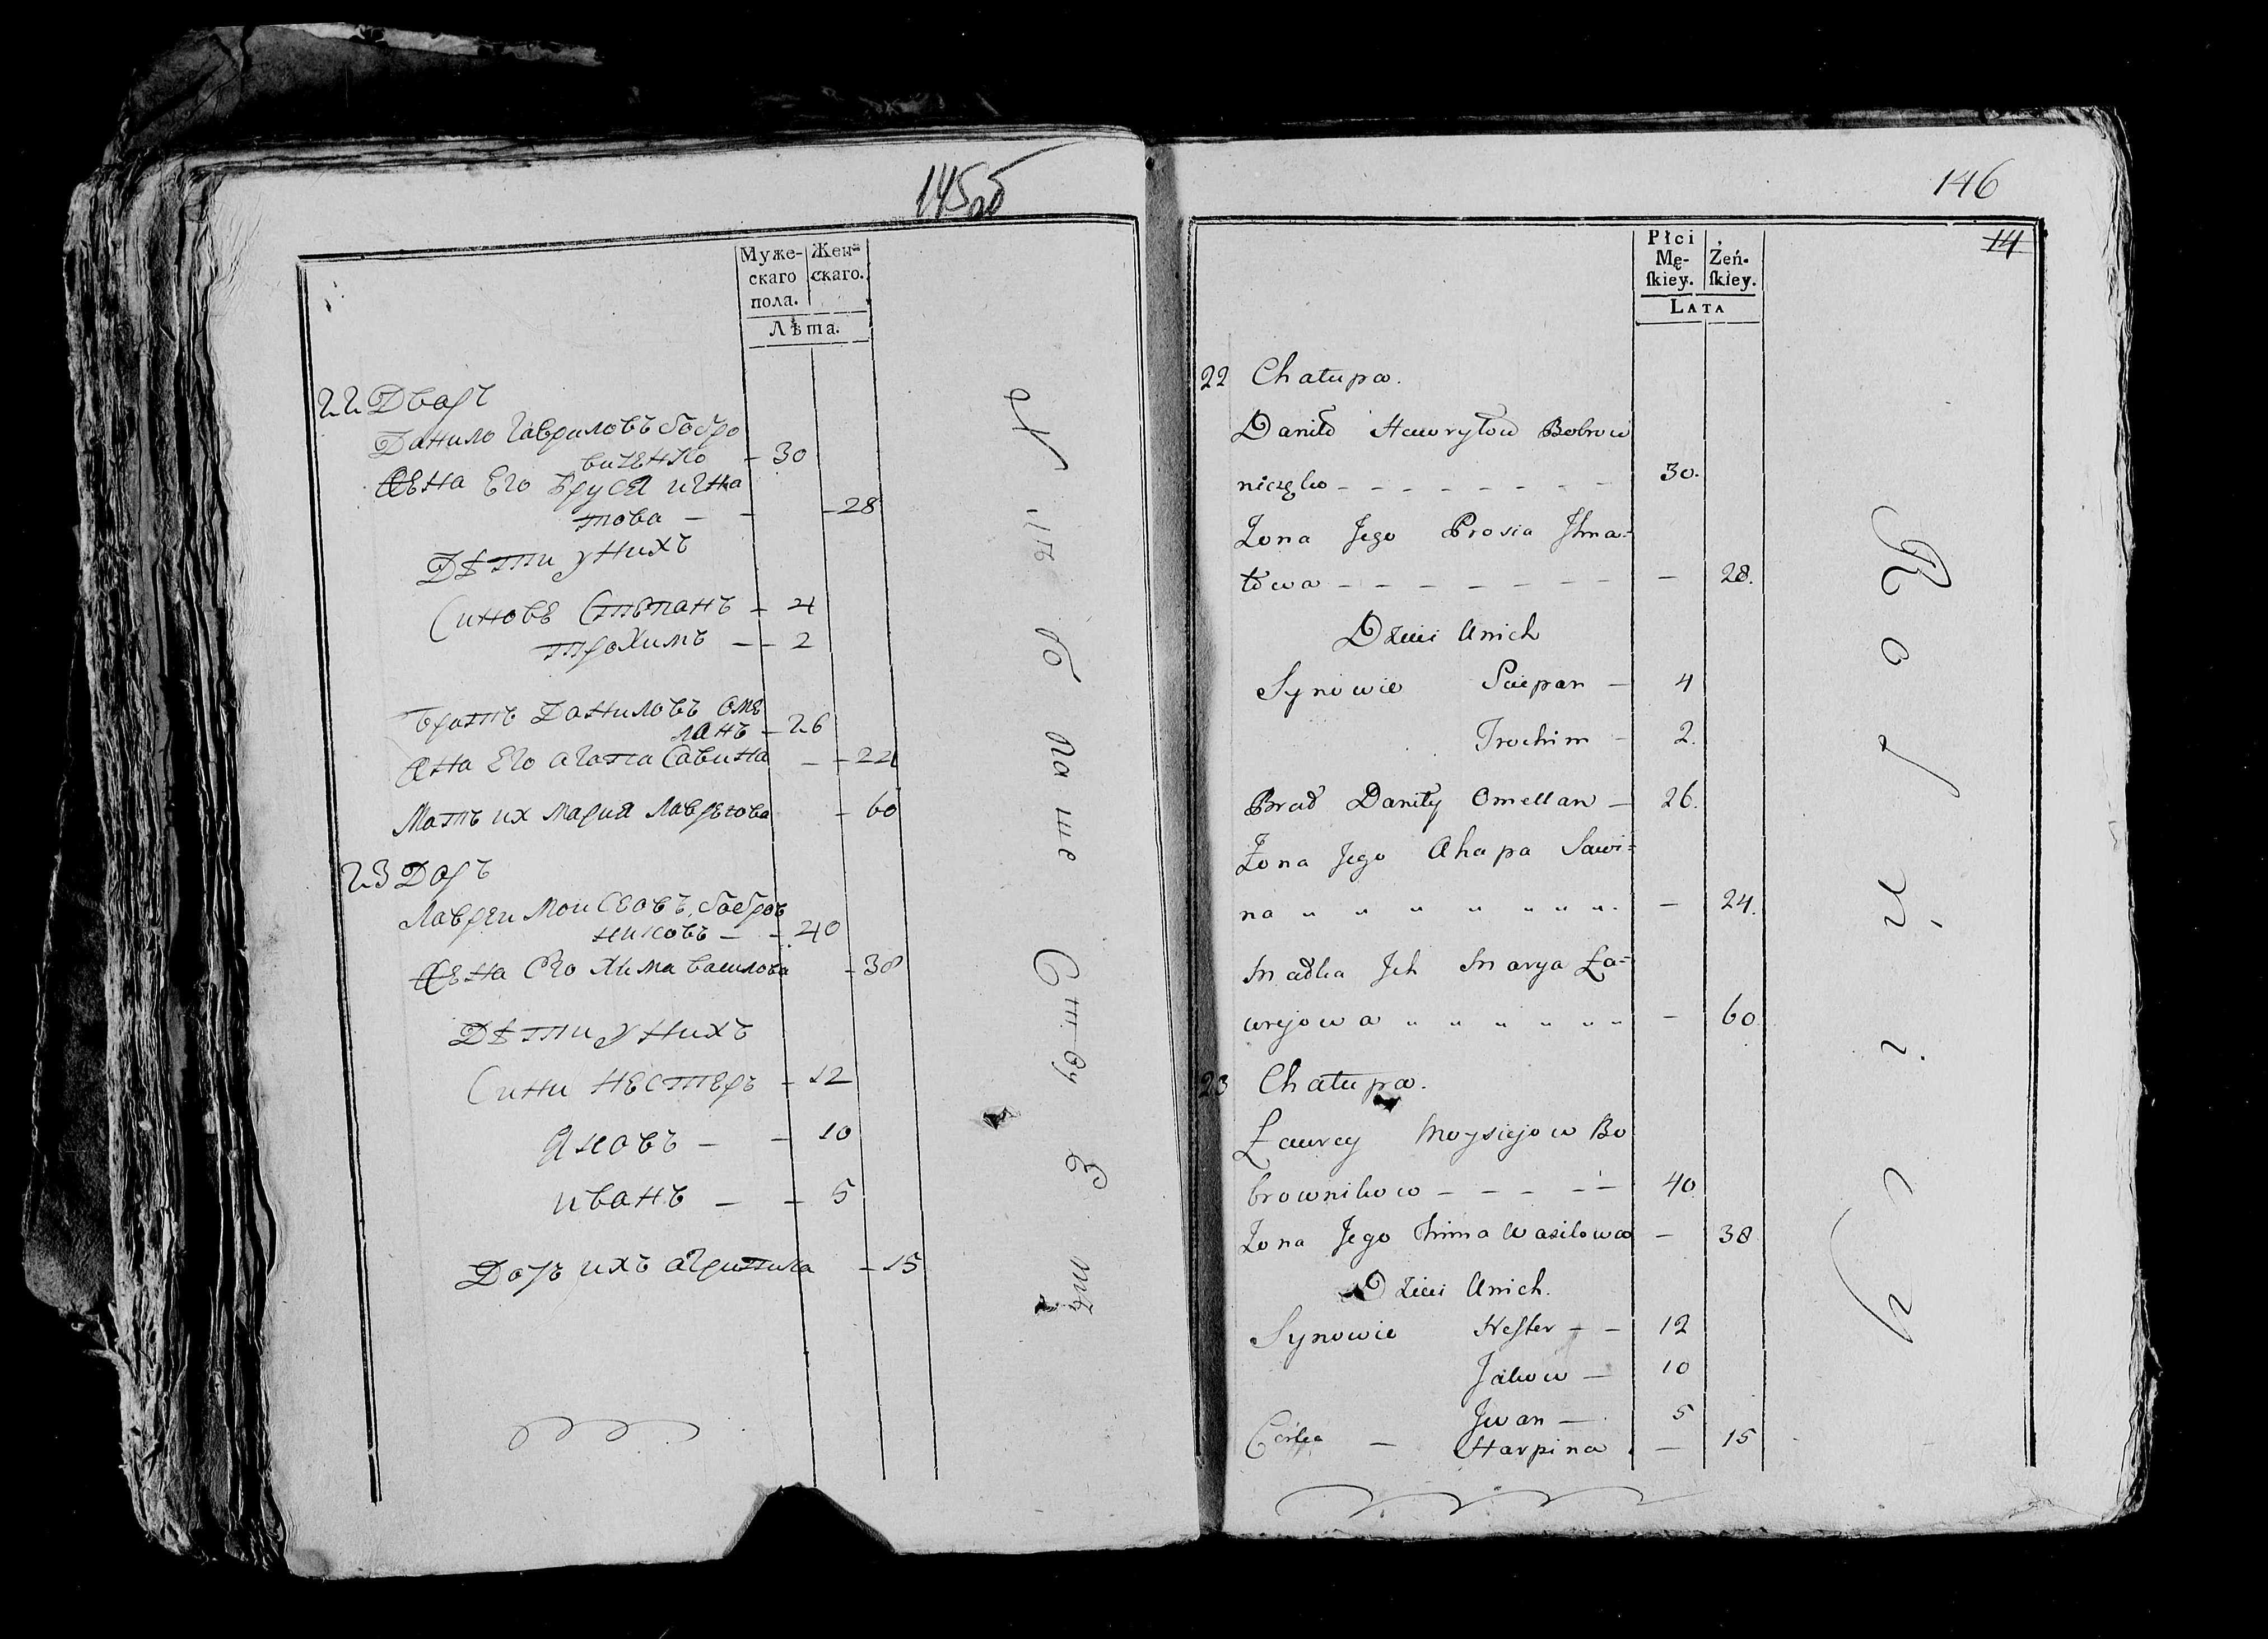 145об
Муже- Жен-
скаго скаго.
пола.
Лѣта.
22 Дворъ
Данило Гавриловъ бобро
виченко — 30
Жена Его Пруся игна
това — — — 28
Дѣти у нихъ
Синове Степанъ — 4
трохимъ — — 2
братъ Даниловъ оме
лянъ — 26
жена Его агапа Савина — — 24
Мать их мария Лаврегова — 60
23 Дворъ
Лаврен Моисеовъ бобров
никовъ — — 40
Жена Его Хима василова — 38
Дѣти у нихъ
Сини нестеръ — 12
Яковъ — — 10
иванъ — — 5
Дочъ ихъ агрипина — 15
146
14
Płci
Mę- Żeń-
ſkiey. ſkiey.
LATA
22 Chałupa.
Daniło Hawryłow Bobrow
niczęko — — — — — — — — 30.
Żona Jego Prosia Ihna-
towa — — — — — — — — 28.
Dzieci Unich
Synowie Sciepan — 4
Trochim — 2.
Brat Daniły Omellan — 26.
Żona Jego Ahapa Sawi-
na „ „ „ „ „ „ „ „ — 24.
Matka Ich Marya Ła-
wrejowa „ „ „ „ „ „ — 60
23 Chałupa.
Ławrey Moysiejow Bo
brownikow — — — — — 40
Żona Jego Chima Wasilowa — 38
Dzieci Unich.
Synowie Neſter — — 12
Jakow — 10
Iwan — 5
Córka — Harpina — 15